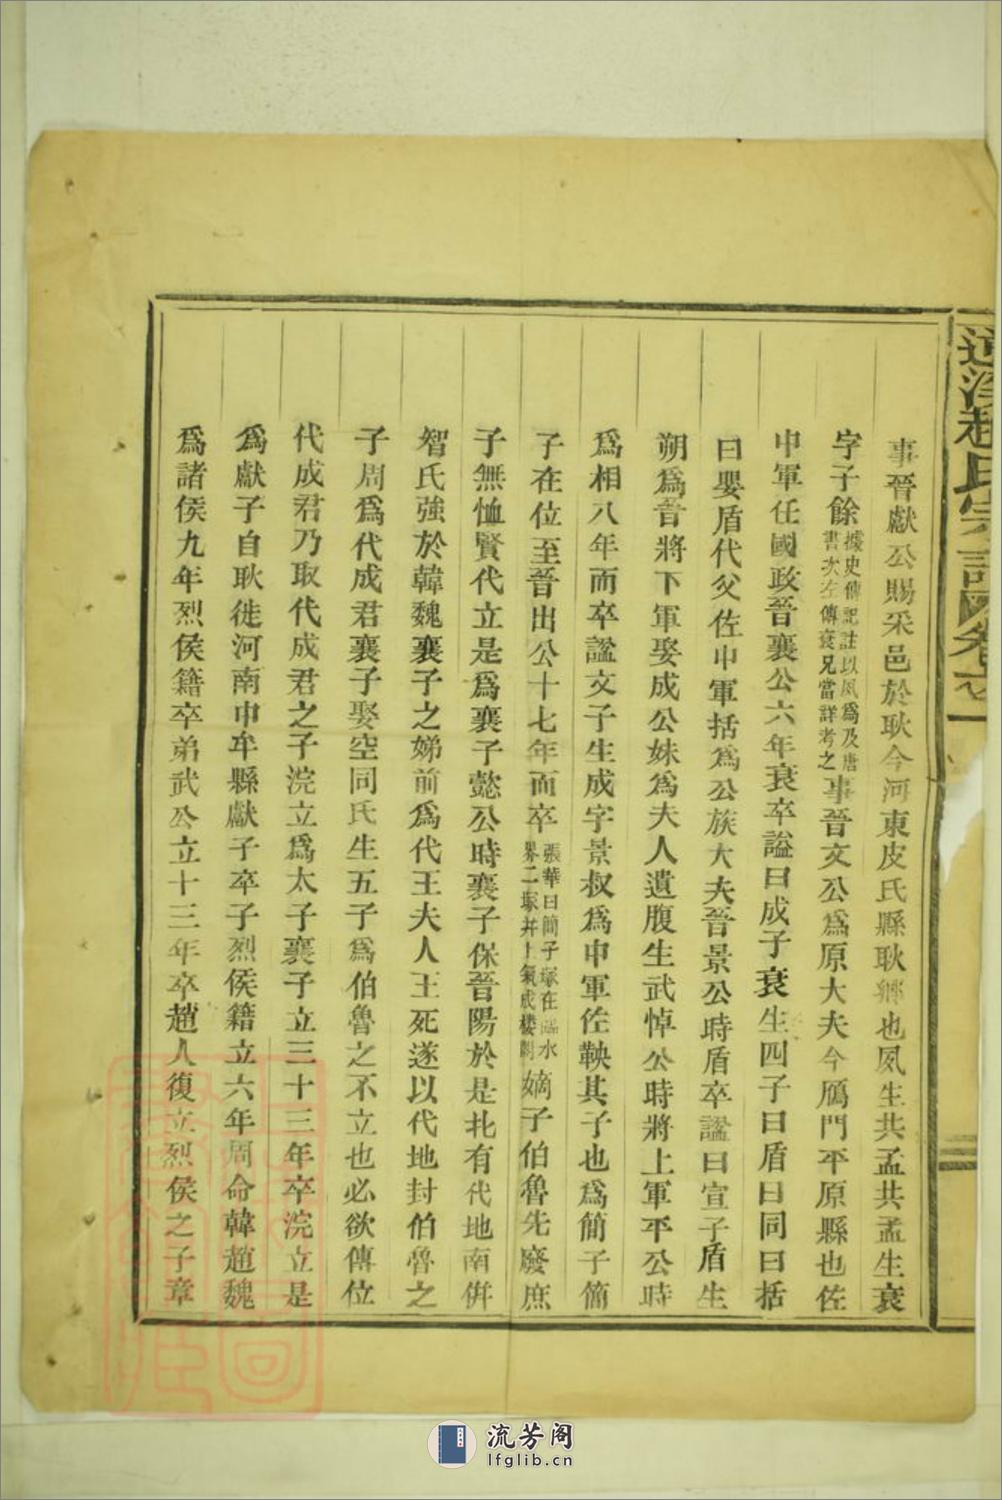 趙氏宗譜卷之一
事晉獻公賜采邑於耿今河東皮氏縣耿鄉也夙生共孟共孟生衰
字子餘據史傳記註以夙爲及唐書次左傳衰兄當詳考之事晉文公爲原大夫今鴈門平原縣也佐
中軍任國政晉襄公六年衰卒謚曰成子衰生四子曰盾曰同曰括
曰嬰盾代父佐中軍括爲公族大夫晉景公時盾卒謚曰宣子盾生
朔爲晉將下軍娶成公妹爲夫人遺腹生武悼公時將上軍平公時
爲相八年而卒謚文子生成字景叔爲中軍佐鞅其子也爲簡子簡
子在位至晉出公十七年而卒張華曰簡子塚在臨水界二塚并上氣成樓閣嫡子伯魯先廢庶
子無恤賢代立是爲襄子懿公時襄子保晉陽於是北有代地南併
智氏強於韓魏襄子之娣前爲代王夫人王死遂以代地封伯魯之
子周爲代成君襄子娶空同氏生五子爲伯魯之不立也必欲傳位
代成君乃取代成君之子浣立爲太子襄子立三十三年卒浣立是
爲獻子自耿徙河南中牟縣獻子卒子烈侯籍立六年周命韓趙魏
爲諸侯九年烈侯籍卒弟武公立十三年卒趙人復立烈侯之子章
流芳阁
lfglib.cn